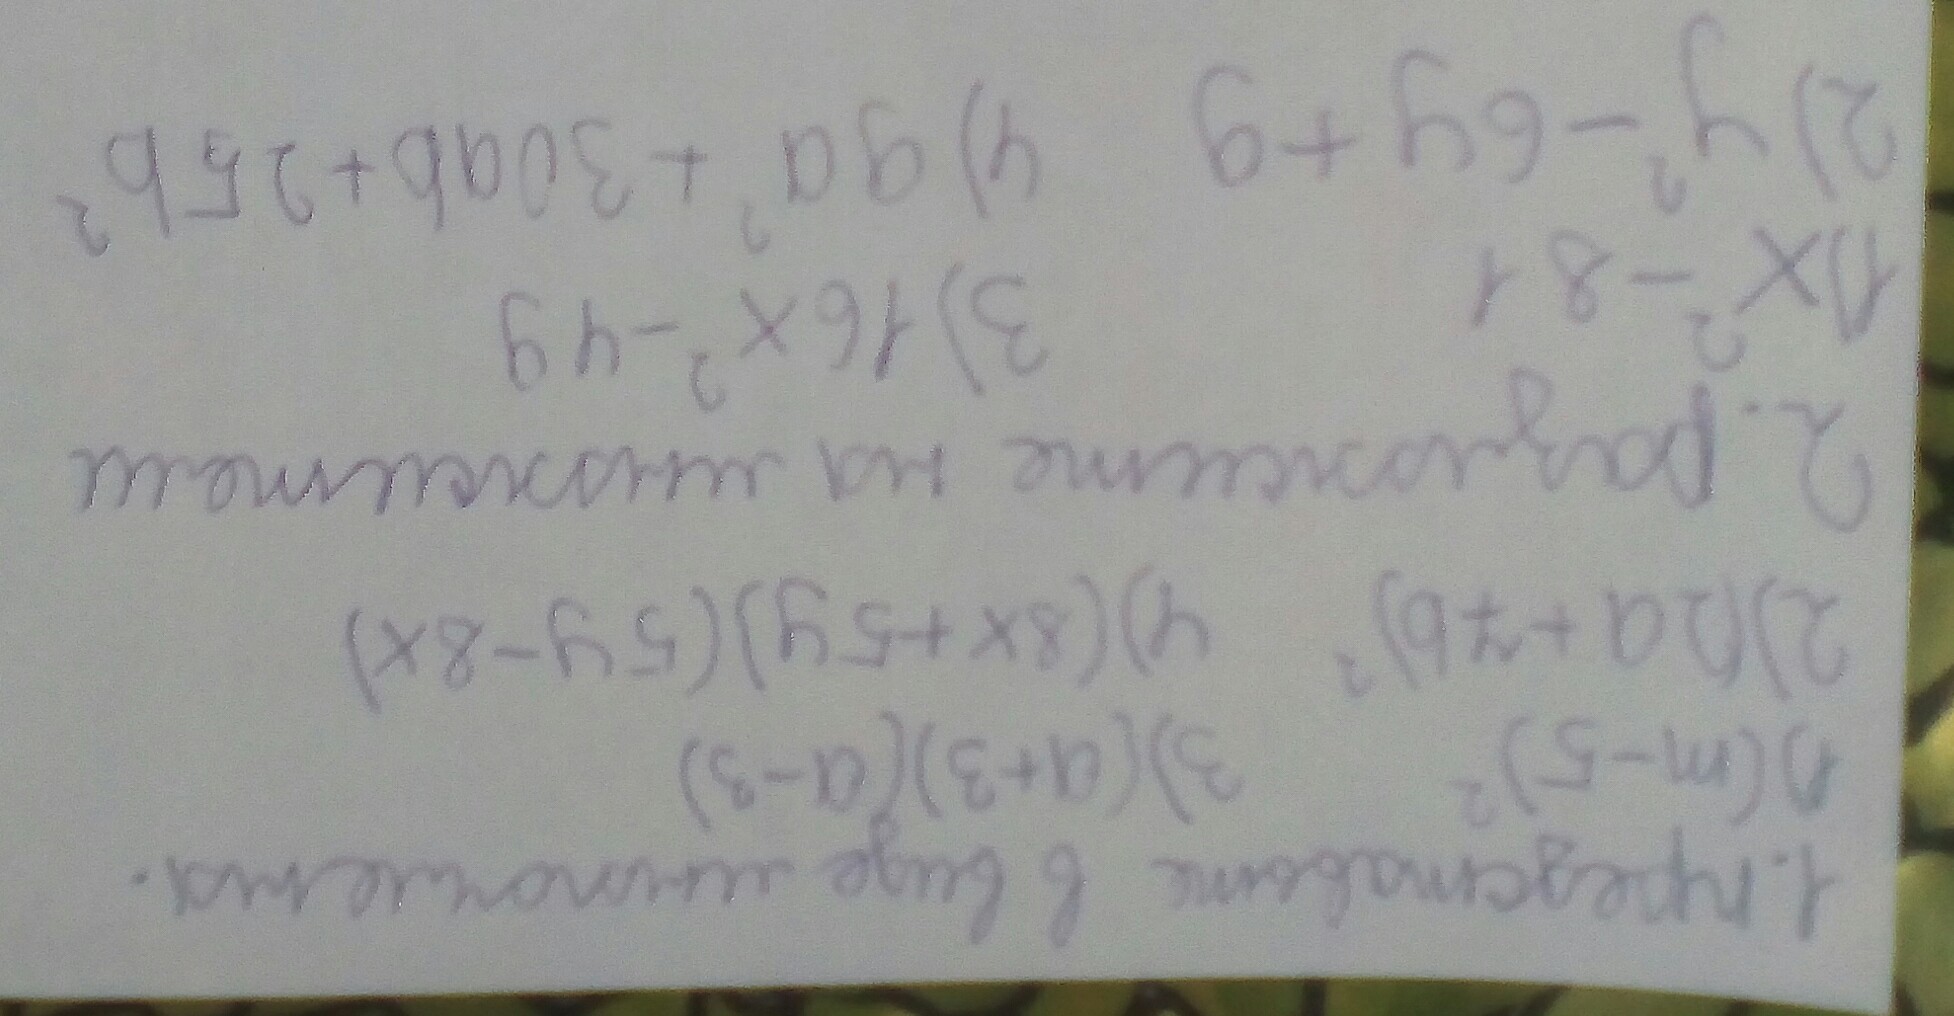 1. представьте в виде многочлена.
1) (m-5)² 3) (a+3)(a-3)
2) (2a+7b)² 4) (8x+5y)(5y-8x)
2. разложите на множители
1) x²-81 3) 16x²-49
2) y²-6y+9 4) 9a²+30ab+25b²